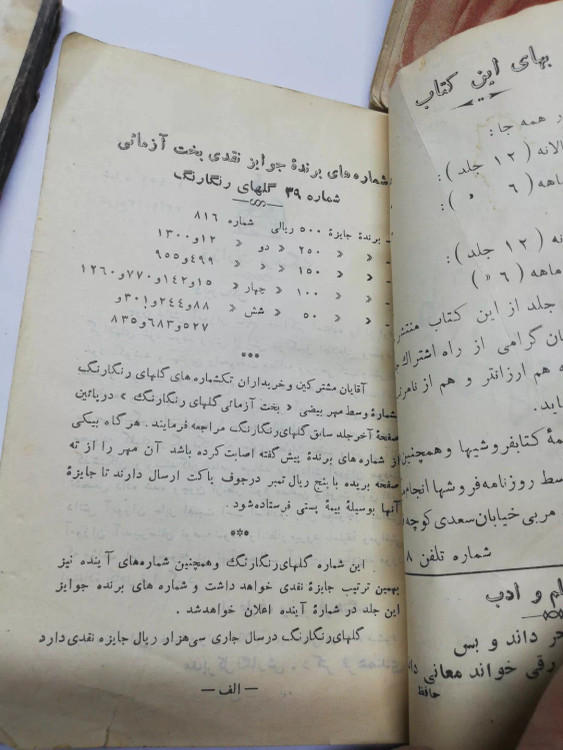 شماره های برندهٔ جوایز نقدی بخت آزمائی
شماره ۳۹ گلهای رنگارنگ
برندهٔ جایزهٔ ۵۰۰ ریالی شماره ۸۱۶
» » ۲۵۰ » دو » ۱۲و۱۳۰۰
» » ۱۵۰ » » » ۴۹۹و۹۵۵
» » ۱۰۰ » چهار » ۱۵و۱۴۲و۷۷۰و۱۲۶۰
» » ۵۰ » شش » ۸۸و۲۴۴و۳۰۱و
۵۲۷و۶۸۳و۸۳۵
***
آقایان مشترکین و خریداران تکشماره های گلهای رنگارنگ
شمارهٔ وسط مهر بیضی « بخت آزمائی گلهای رنگارنگ » درپائین
صفحهٔ آخر جلد سابق گلهای رنگارنگ مراجعه فرمایند . هر گاه بیکی
از شماره های برندهٔ پیش گفته اصابت کرده باشد آن مهر را از ته
صفحه بریده با پنج ریال تمبر درجوف پاکت ارسال دارند تا جایزهٔ
آنها بوسیلهٔ بیمهٔ پستی فرستاده شود .
***
این شماره گلهای رنگارنگ وهمچنین شماره های آینده نیز
بهمین ترتیب جایزهٔ نقدی خواهد داشت و شماره های برنده جوایز
این جلد در شمارهٔ آینده اعلان خواهدشد .
گلهای رنگارنگ درسال جاری سی هزار ریال جایزه نقدی دارد
— الف —
بهای این کتاب
در همه جا :
(۱۲ جلد) :
(۶ » ) :
(۱۲ جلد) :
(۶ » )
جلد از این کتاب منتشر
گرامی از راه اشتراک
هم ارزانتر و هم از
کتابفروشیها وهمچنین
روزنامه فروشها انجام
خیابان سعدی کوچه
شماره تلفن ۸
و ادب
داند و بس
خواند معانی
حافظ